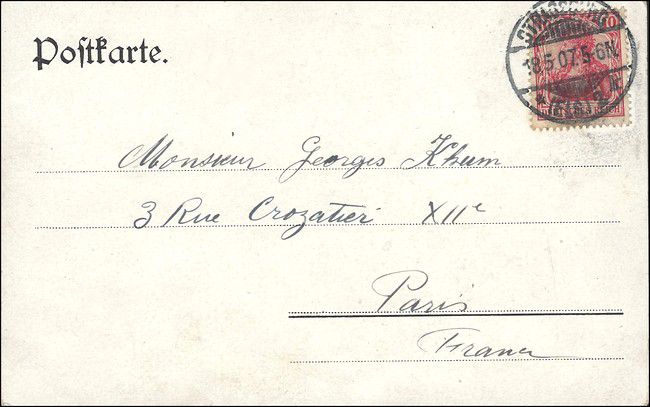 Postkarte.
STRASSBURG
18.5.07.5-6N.
10
Monsieur Georges Khum
3 Rue Crozatier XIIe
Paris
France